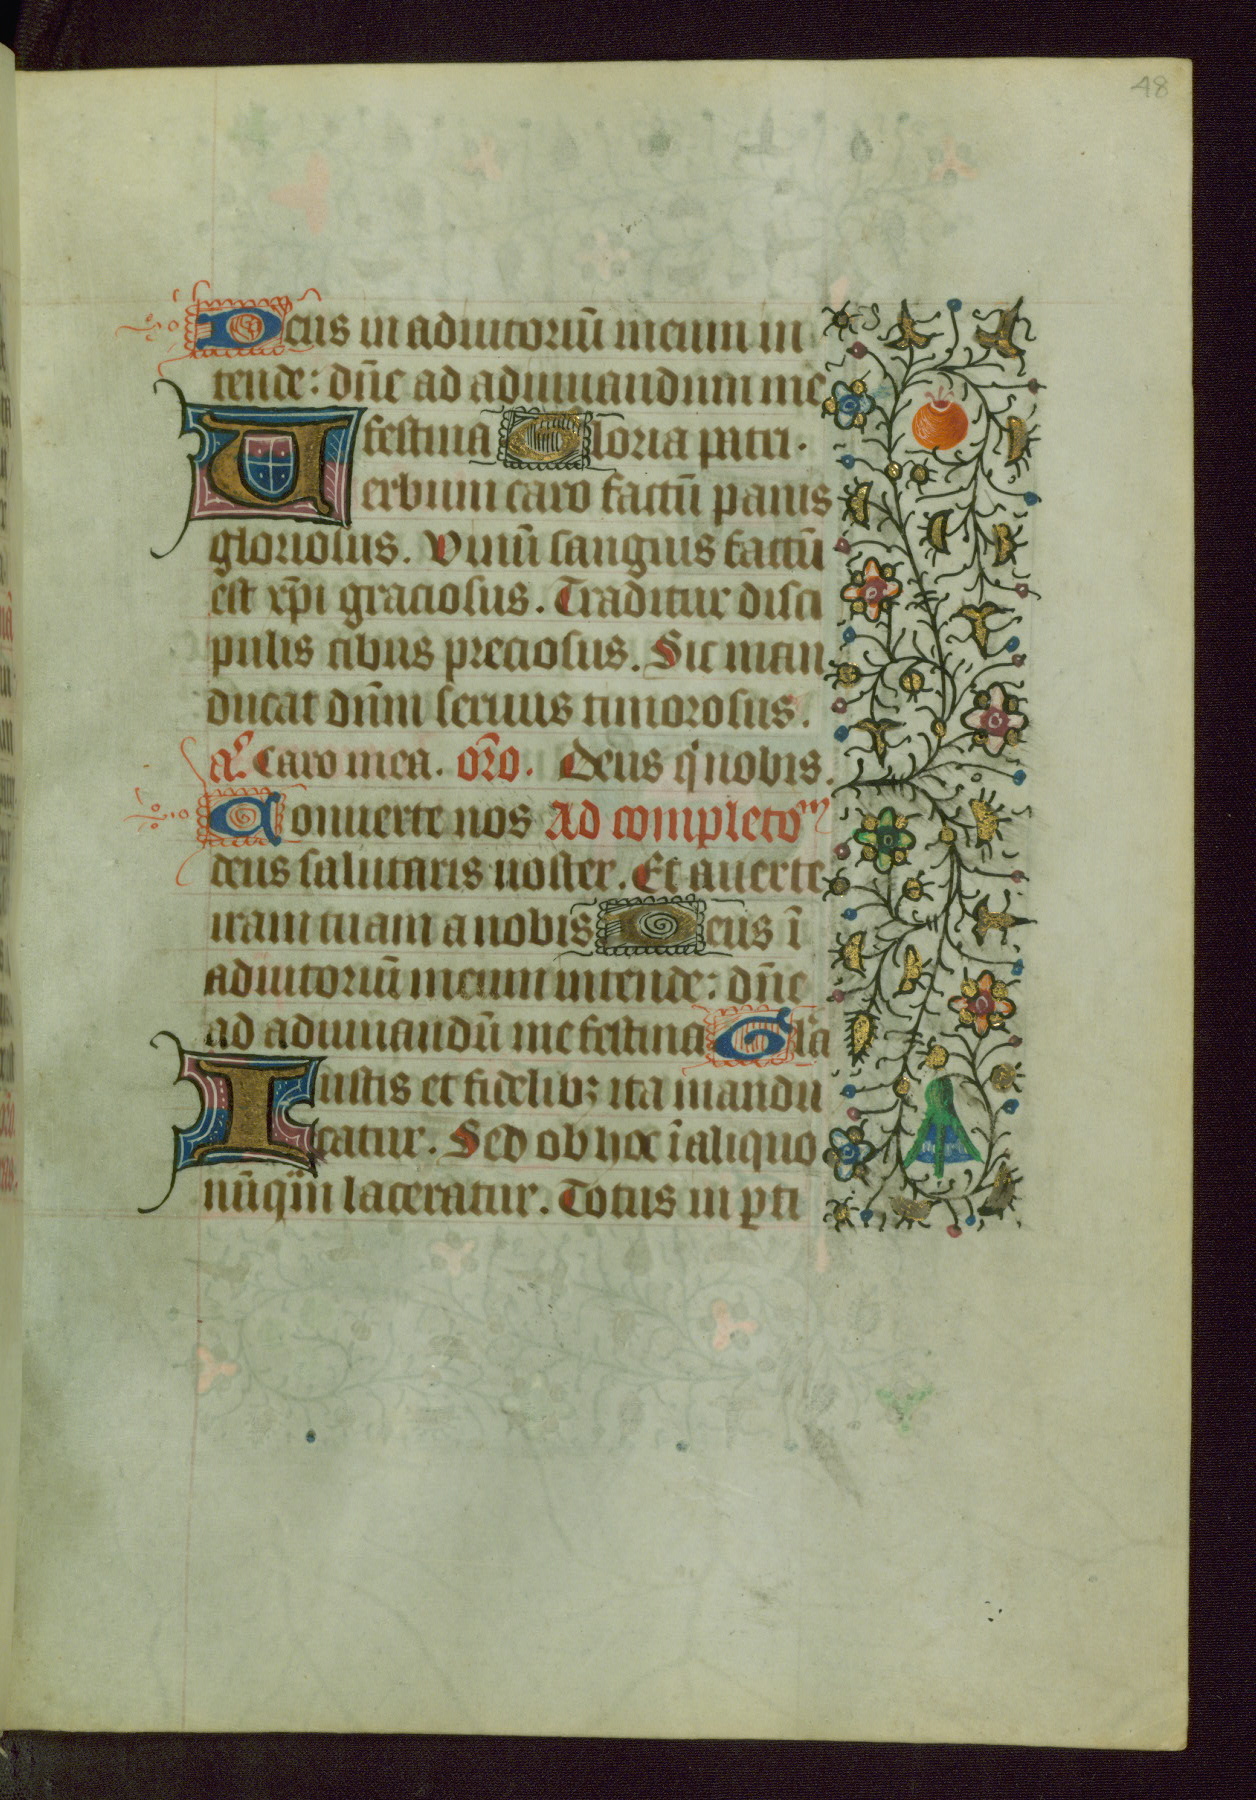 48
Deus in adiutoriū meum in
tende: dn̄e ad adiuuandum me
festina Gloria patri.
Uerbum caro factū panis
gloriosus. Vinū sanguis factū
est xp̄i graciosus. Traditur disci
pulis cibus preciosus. Sic man
ducat dn̄m seruus timorosus.
a᷎. Caro mea. or̄o. Deus q' nobis.
Conuerte nos Ad completo᷎ꝫ
deus salutaris noster. Et auerte
iram tuam a nobis Deus ī
adiutoriū meum intende: dn̄e
ad adiuuandū me festina Gl'a
Iustis et fidelibꝫ ita mandu
catur. Sed ob hoc ī aliquo
nūqͣm laceratur. Totus in ꝑti